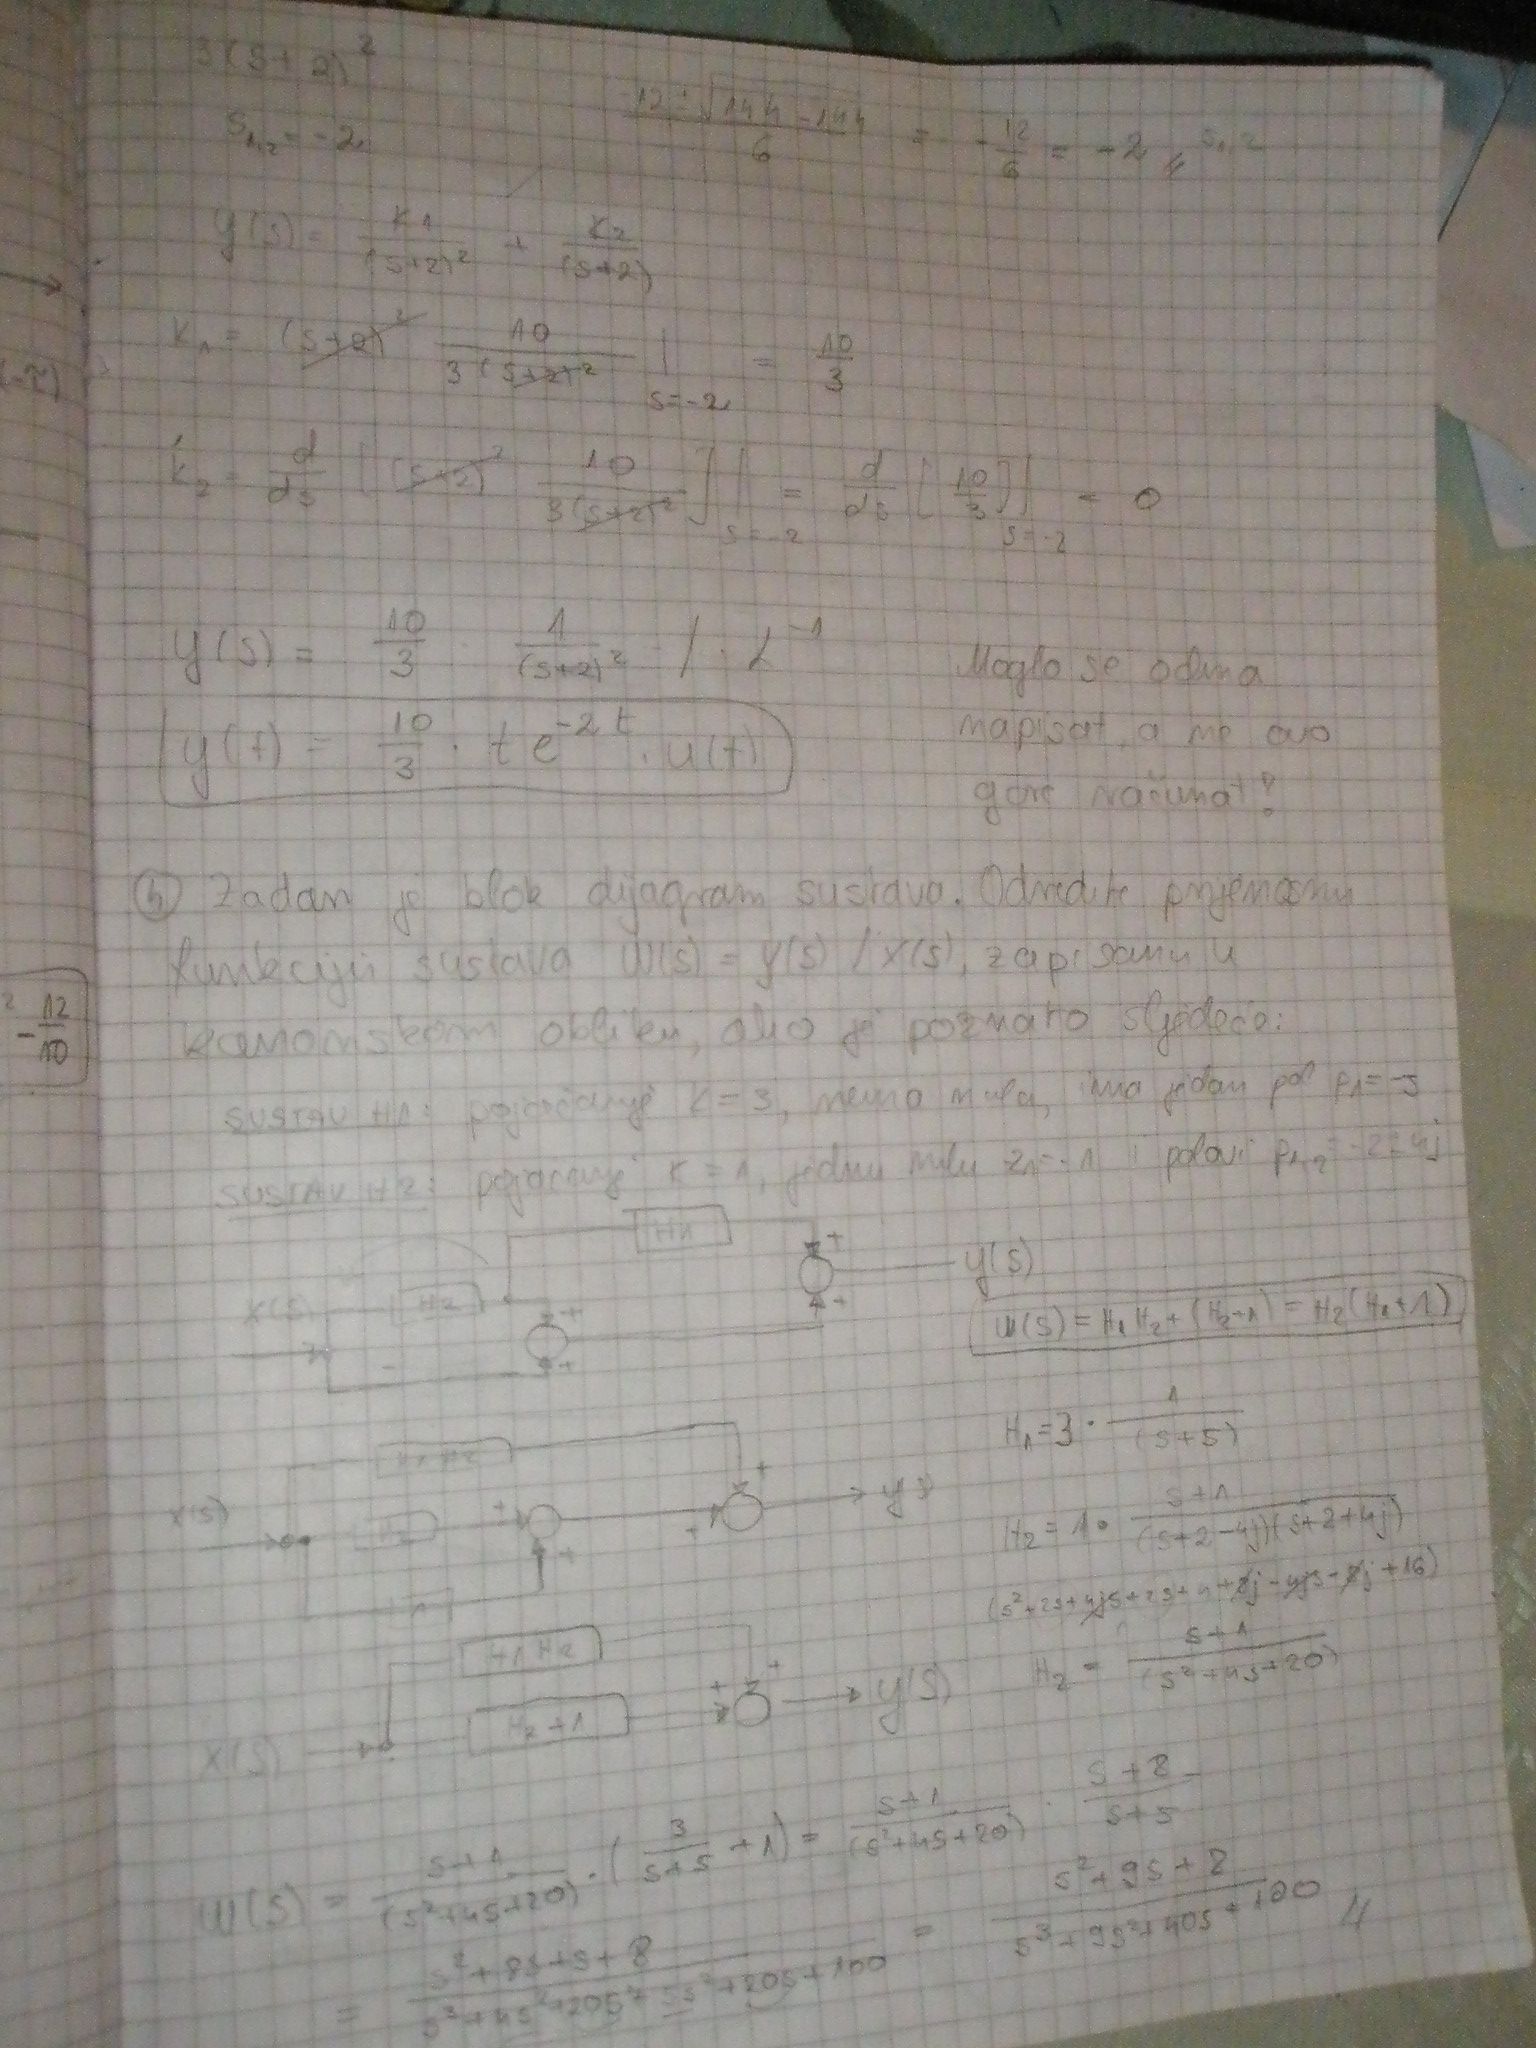 3(s+2)²
s₁,₂ = -2
-12 ± √144 - 144 / 6 = - 12/6 = -2 // s₁,₂
y(s) = k1/(s+2)² + k2/(s+2)
k₁ = (s+2)² 10/3(s+2)² | s=-2 = 10/3
k₂ = d/ds [(s+2)² 10/3(s+2)²] | s=-2 = d/ds [10/3] | s=-2 = 0
y(s) = 10/3 · 1/(s+2)² / · L⁻¹
y(t) = 10/3 · t e^-2t · u(t)
Moglo se odma
napisat, a ne ovo
gore računat?
(-τ)
² - 12/10
Zadan je blok dijagram sustava. Odredite prijenosnu
funkciju sustava W(s) = Y(s) / X(s), zapisanu u
kanonskom obliku, ako je poznato sljedeće:
SUSTAV H1: pojačanje K = 3, nema nula, ima jedan pol p₁ = -5
SUSTAV H2: pojačanje K = 1, jednu nulu z₁ = -1 i polovi p₁,₂ = -2 ± 4j
H1
+
y(s)
X(s) H2 +
+
- +
W(s) = H₁H₂ + (H₂+1) = H₂(H₁+1)
H₁ = 3 · 1/(s+5)
H1 H2
+
X(s) H2 + + y(s)
+
1
H₂ = 1 · s+1/(s+2-4j)(s+2+4j)
(s²+2s+4js+2s+4+8j-4js-8j+16)
H₂ = s+1/(s²+4s+20)
H1 H2
+
+ y(s)
X(s) H₂+1
W(s) = s+1/(s²+4s+20) · (3/s+5 + 1) = s+1/(s²+4s+20) · s+8/s+5
= s²+8s+s+8/s³+4s²+20s+5s²+20s+100 = s²+9s+8/s³+9s²+40s+100 //